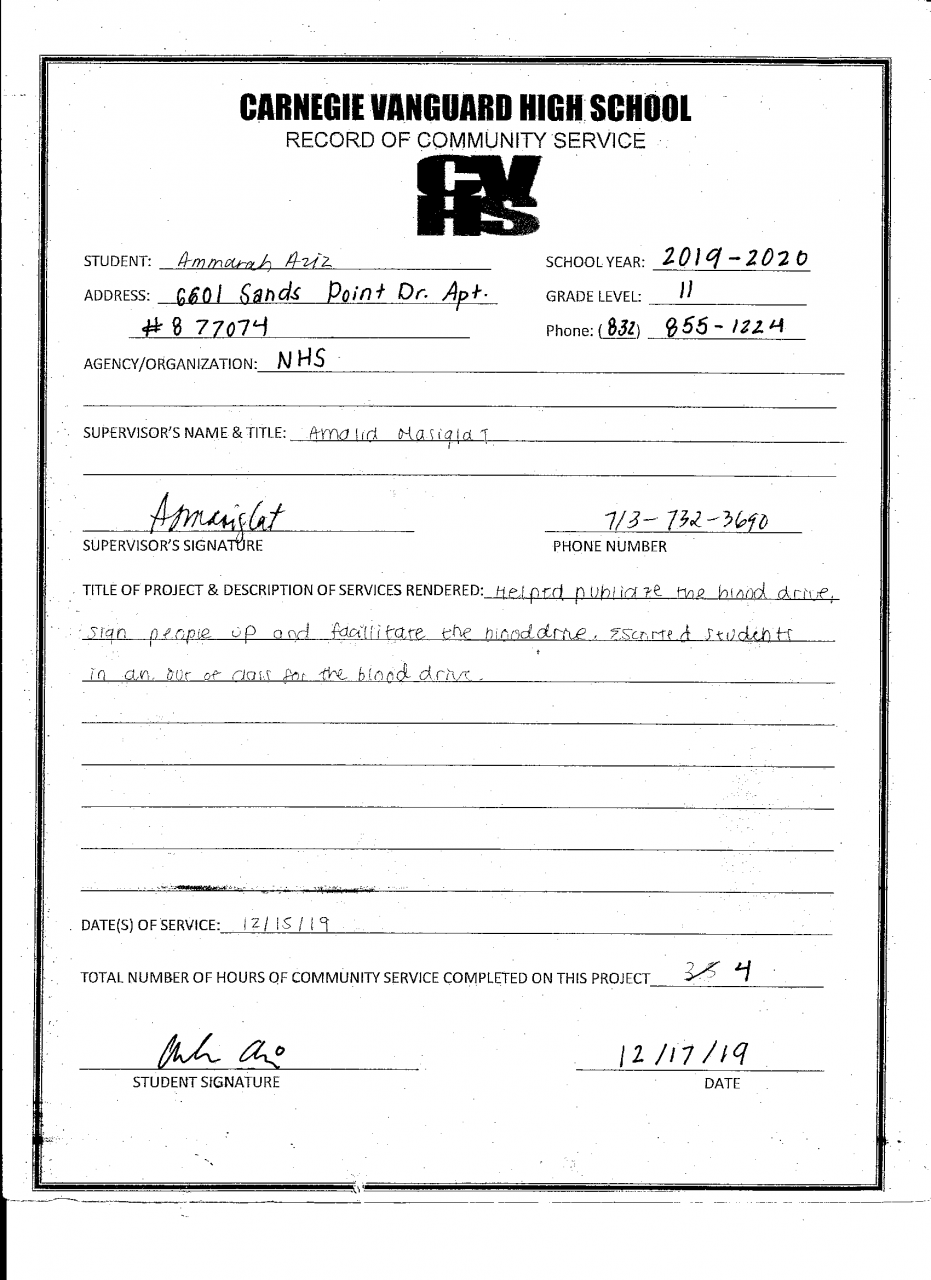 CARNEGIE VANGUARD HIGH SCHOOL
RECORD OF COMMUNITY SERVICE
CV
HS
STUDENT: Ammarah Aziz SCHOOL YEAR: 2019-2020
ADDRESS: 6601 Sands Point Dr. Apt. GRADE LEVEL: 11
#8 77074 Phone: (832) 855-1224
AGENCY/ORGANIZATION: NHS
SUPERVISOR'S NAME & TITLE: Masiglat
713-732-3690
SUPERVISOR'S SIGNATURE PHONE NUMBER
TITLE OF PROJECT & DESCRIPTION OF SERVICES RENDERED: Helped publicize the blood drive,
sign people up and facillitate the blood drive. Escorted students
in an out of class for the blood drive.
DATE(S) OF SERVICE: 12/15/19
TOTAL NUMBER OF HOURS OF COMMUNITY SERVICE COMPLETED ON THIS PROJECT 4
12/17/19
STUDENT SIGNATURE DATE